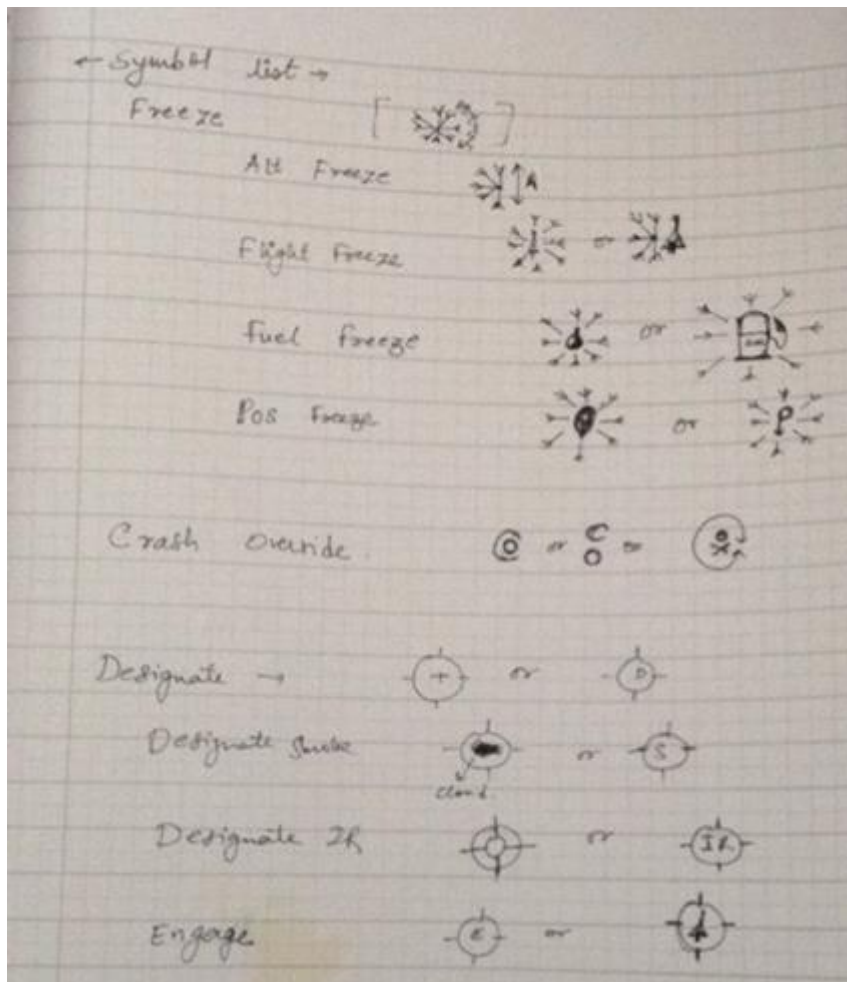 ← Symbol list →
Freeze
Alt Freeze A
Flight Freeze or
Fuel Freeze or
Pos Freeze or P
Crash Override or C O or
Designate → or D
Designate Smoke or S
cloud
Designate IR or IR
Engage E or